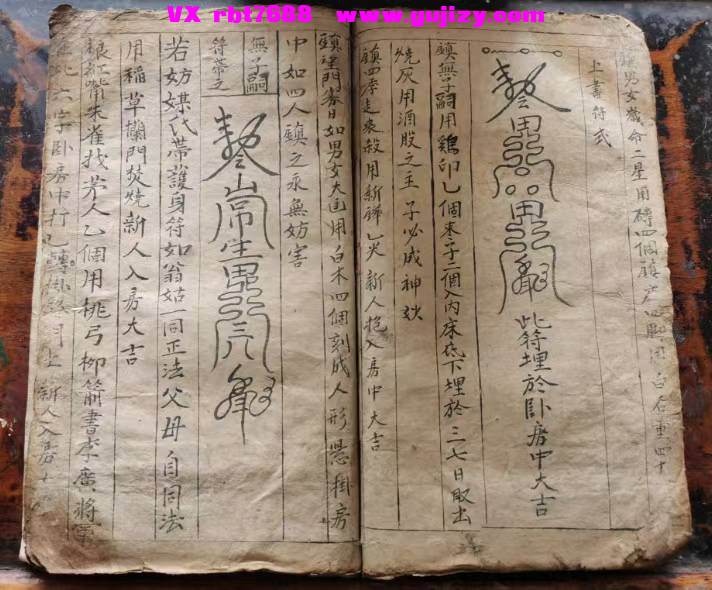 VX rbt7688 www.gujizy.com
男女歲命二星用磚四個
上書符式
此符埋於卧房中大吉
鎮無子嗣用鷄卵乙個枣子二個入内床底下埋於三七日取出
燒灰用酒服之主子必成神效
用新 乙火新人抱入房中大吉
如男女大 用白木四個刻成人形懸掛房
中如四人鎮之永無妨害
無子嗣
符帶之
若妨媒氏帶護身符如翁姑一同正法父母自同法
用稻草蘭門焚燒新人入房大吉
朱雀找茅人乙個用桃弓柳箭書李廣將軍
六字卧房中打 新人入房